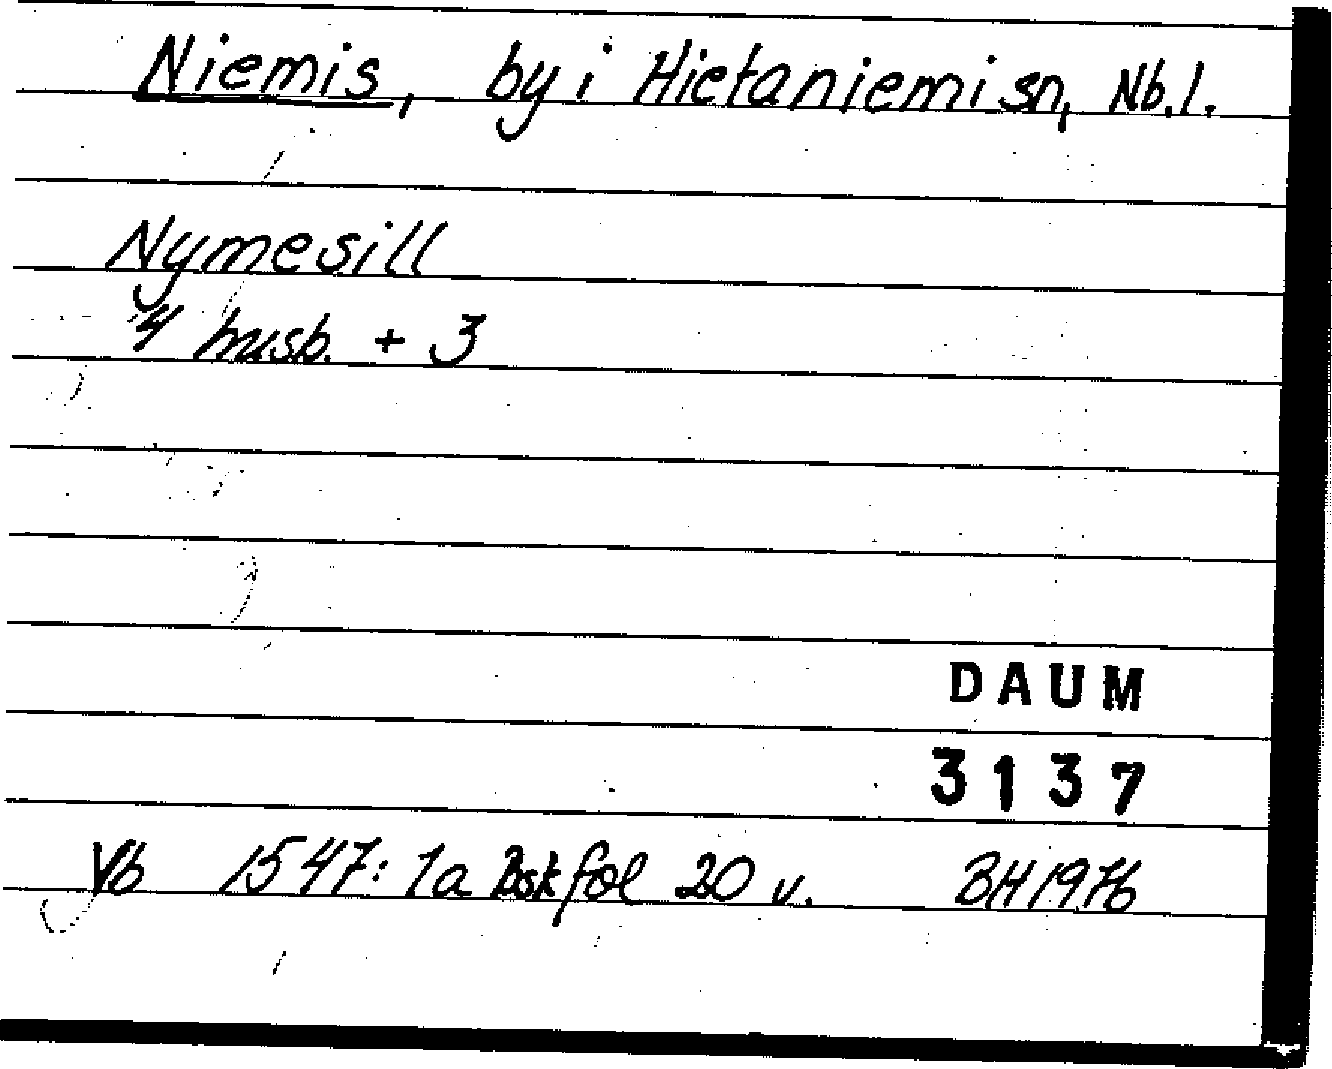 Niemis, by i Hietaniemi sn, Nb.l.
Nymesill
4 husb. + 3
DAUM
3137
Jb 1547: 1a Bsk fol 20 v. BH 1976